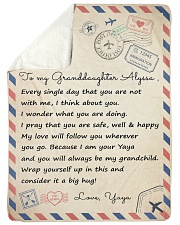 To my Granddaughter Alyssa,
Every single day that you are not
with me, I think about you.
I wonder what you are doing.
I pray that you are safe, well & happy
My love will follow you wherever
you go. Because I am your Yaya
and you will always be my grandchild.
Wrap yourself up in this and
consider it a big hug!
Love, Yaya